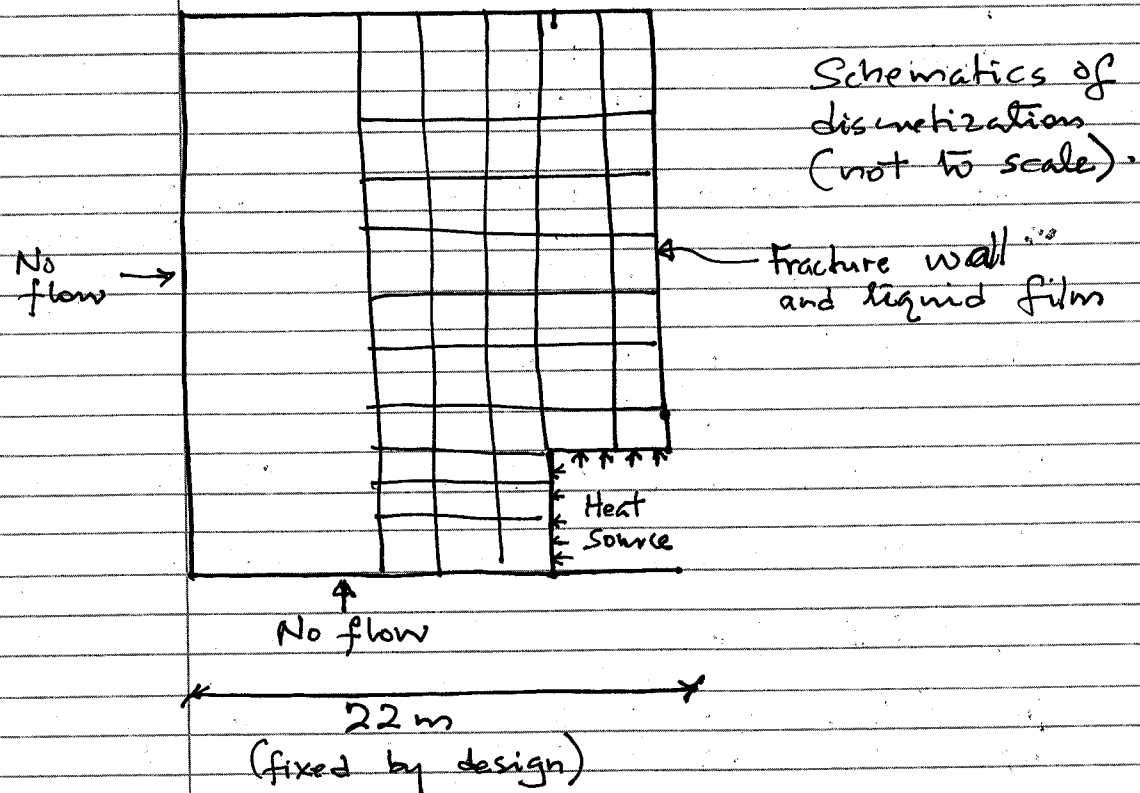 Schematics of
discretization
(not to scale).
No
flow
Fracture wall
and liquid film
Heat
Source
No flow
22 m
(fixed by design)